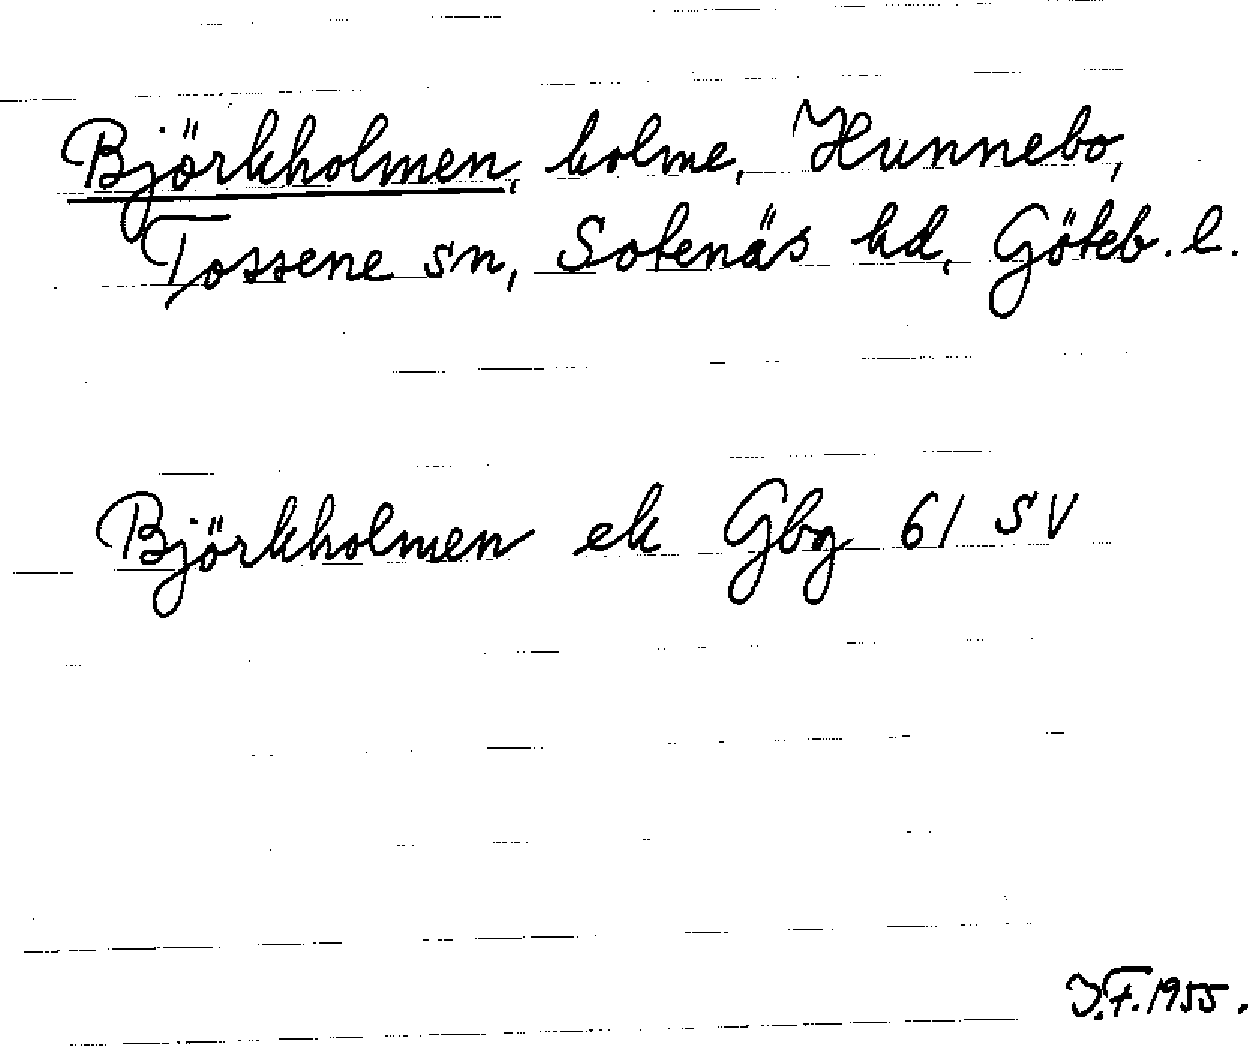 Björkholmen, holme, Hunnebo,
Tossene sn, Sotenäs hd, Göteb. l.
Björkholmen ek Gbg 61 SV
J.F. 1955.